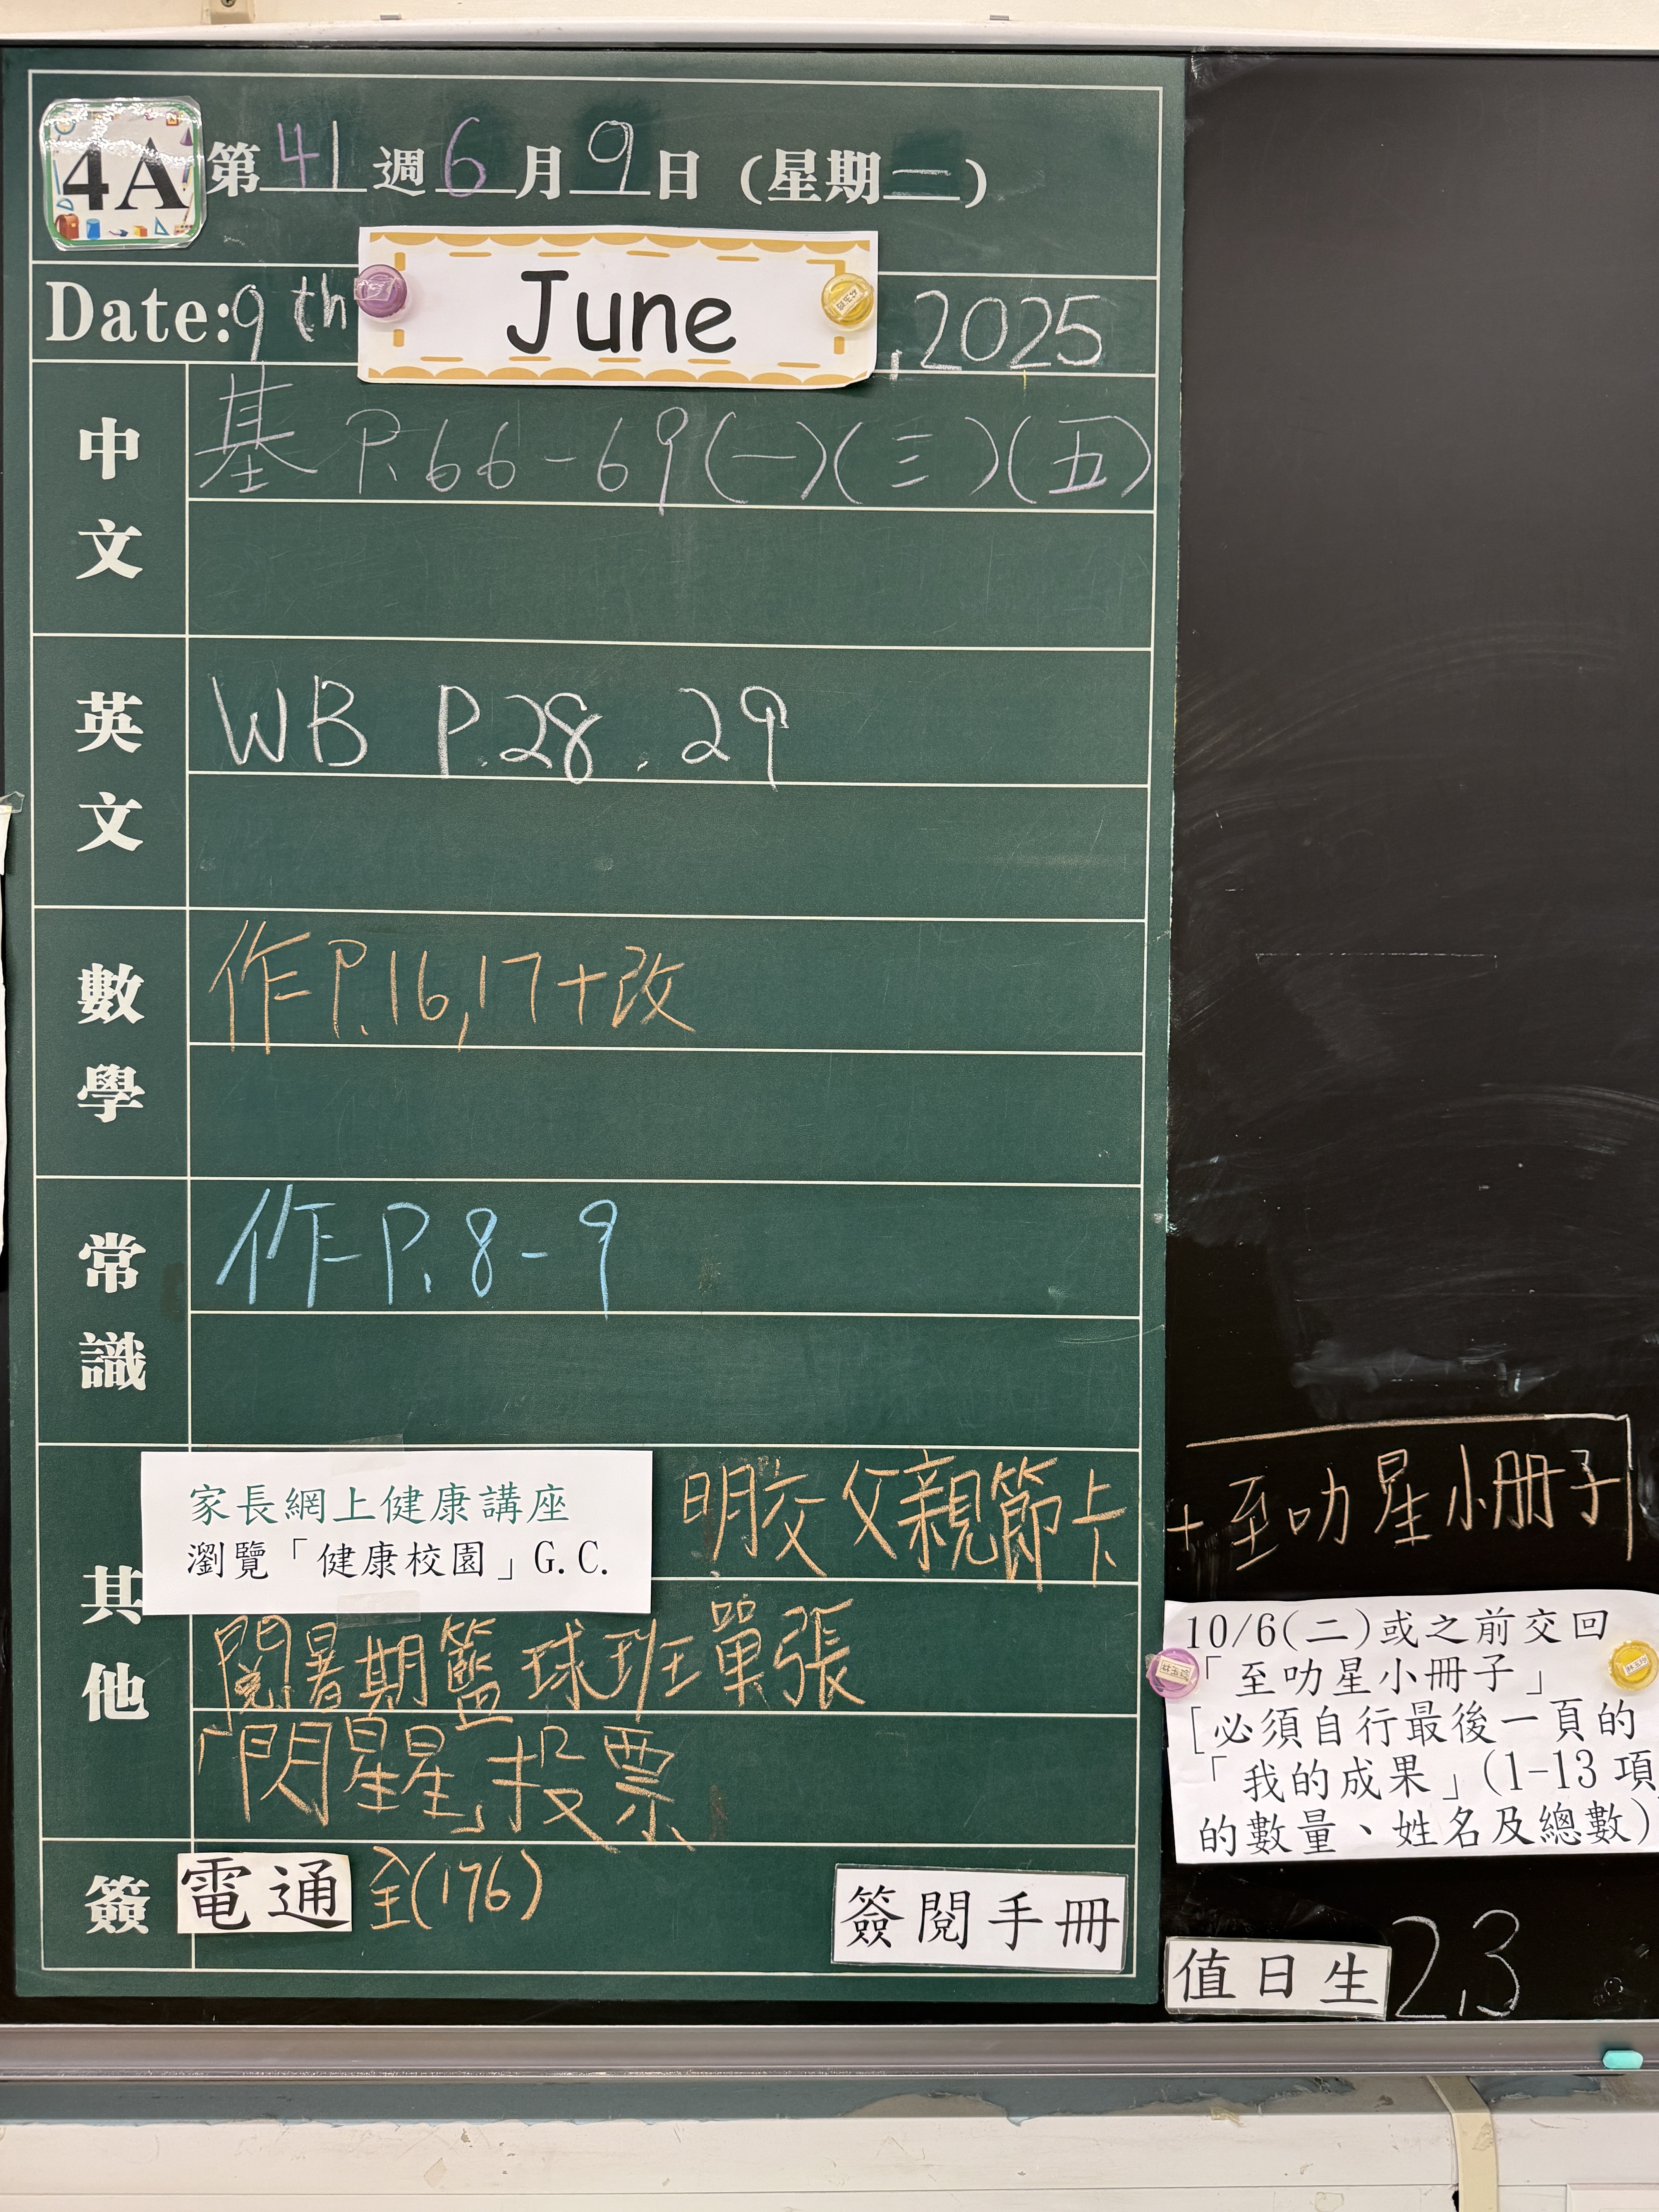 4A 第 41 週 6 月 9 日 (星期一)
Date: 9th June, 2025
中文
基 P.66-69(一)(三)(五)
英文
WB P.28.29
數學
作 P.16,17+改
常識
作 P.8-9
其他
家長網上健康講座
瀏覽「健康校園」G.C.
明交父親節卡
+至叻星小冊子
閱暑期籃球班單張
「閃星星」投票
10/6(二)或之前交回
「至叻星小冊子」
[必須自行最後一頁的
「我的成果」(1-13項
的數量、姓名及總數)
簽 電通 全(176) 簽閱手冊
值日生 2,3